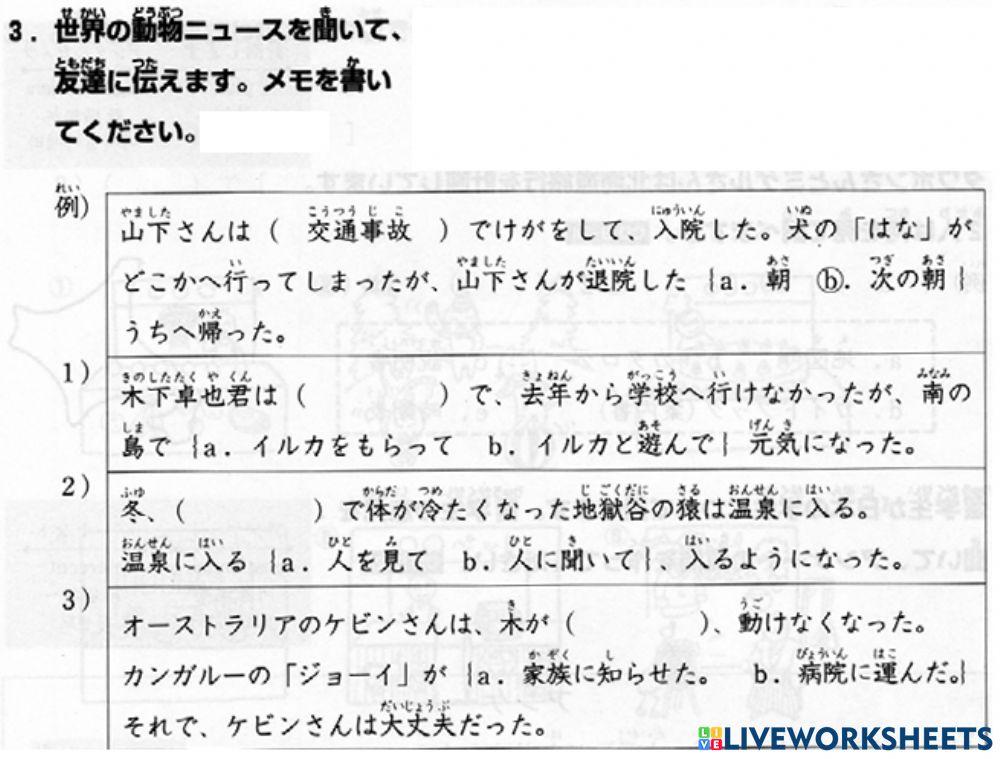 3. 世界の動物ニュースを聞いて、
友達に伝えます。メモを書い
てください。
例) 山下さんは ( 交通事故 ) でけがをして、入院した。犬の「はな」が
どこかへ行ってしまったが、山下さんが退院した {a. 朝 ⓑ. 次の朝}
うちへ帰った。
1) 木下卓也君は ( ) で、去年から学校へ行けなかったが、南の
島で {a. イルカをもらって b. イルカと遊んで} 元気になった。
2) 冬、( ) で体が冷たくなった地獄谷の猿は温泉に入る。
温泉に入る {a. 人を見て b. 人に聞いて} 入るようになった。
3) オーストラリアのケビンさんは、木が ( )、動けなくなった。
カンガルーの「ジョーイ」が {a. 家族に知らせた。 b. 病院に運んだ。}
それで、ケビンさんは大丈夫だった。
LIVEWORKSHEETS